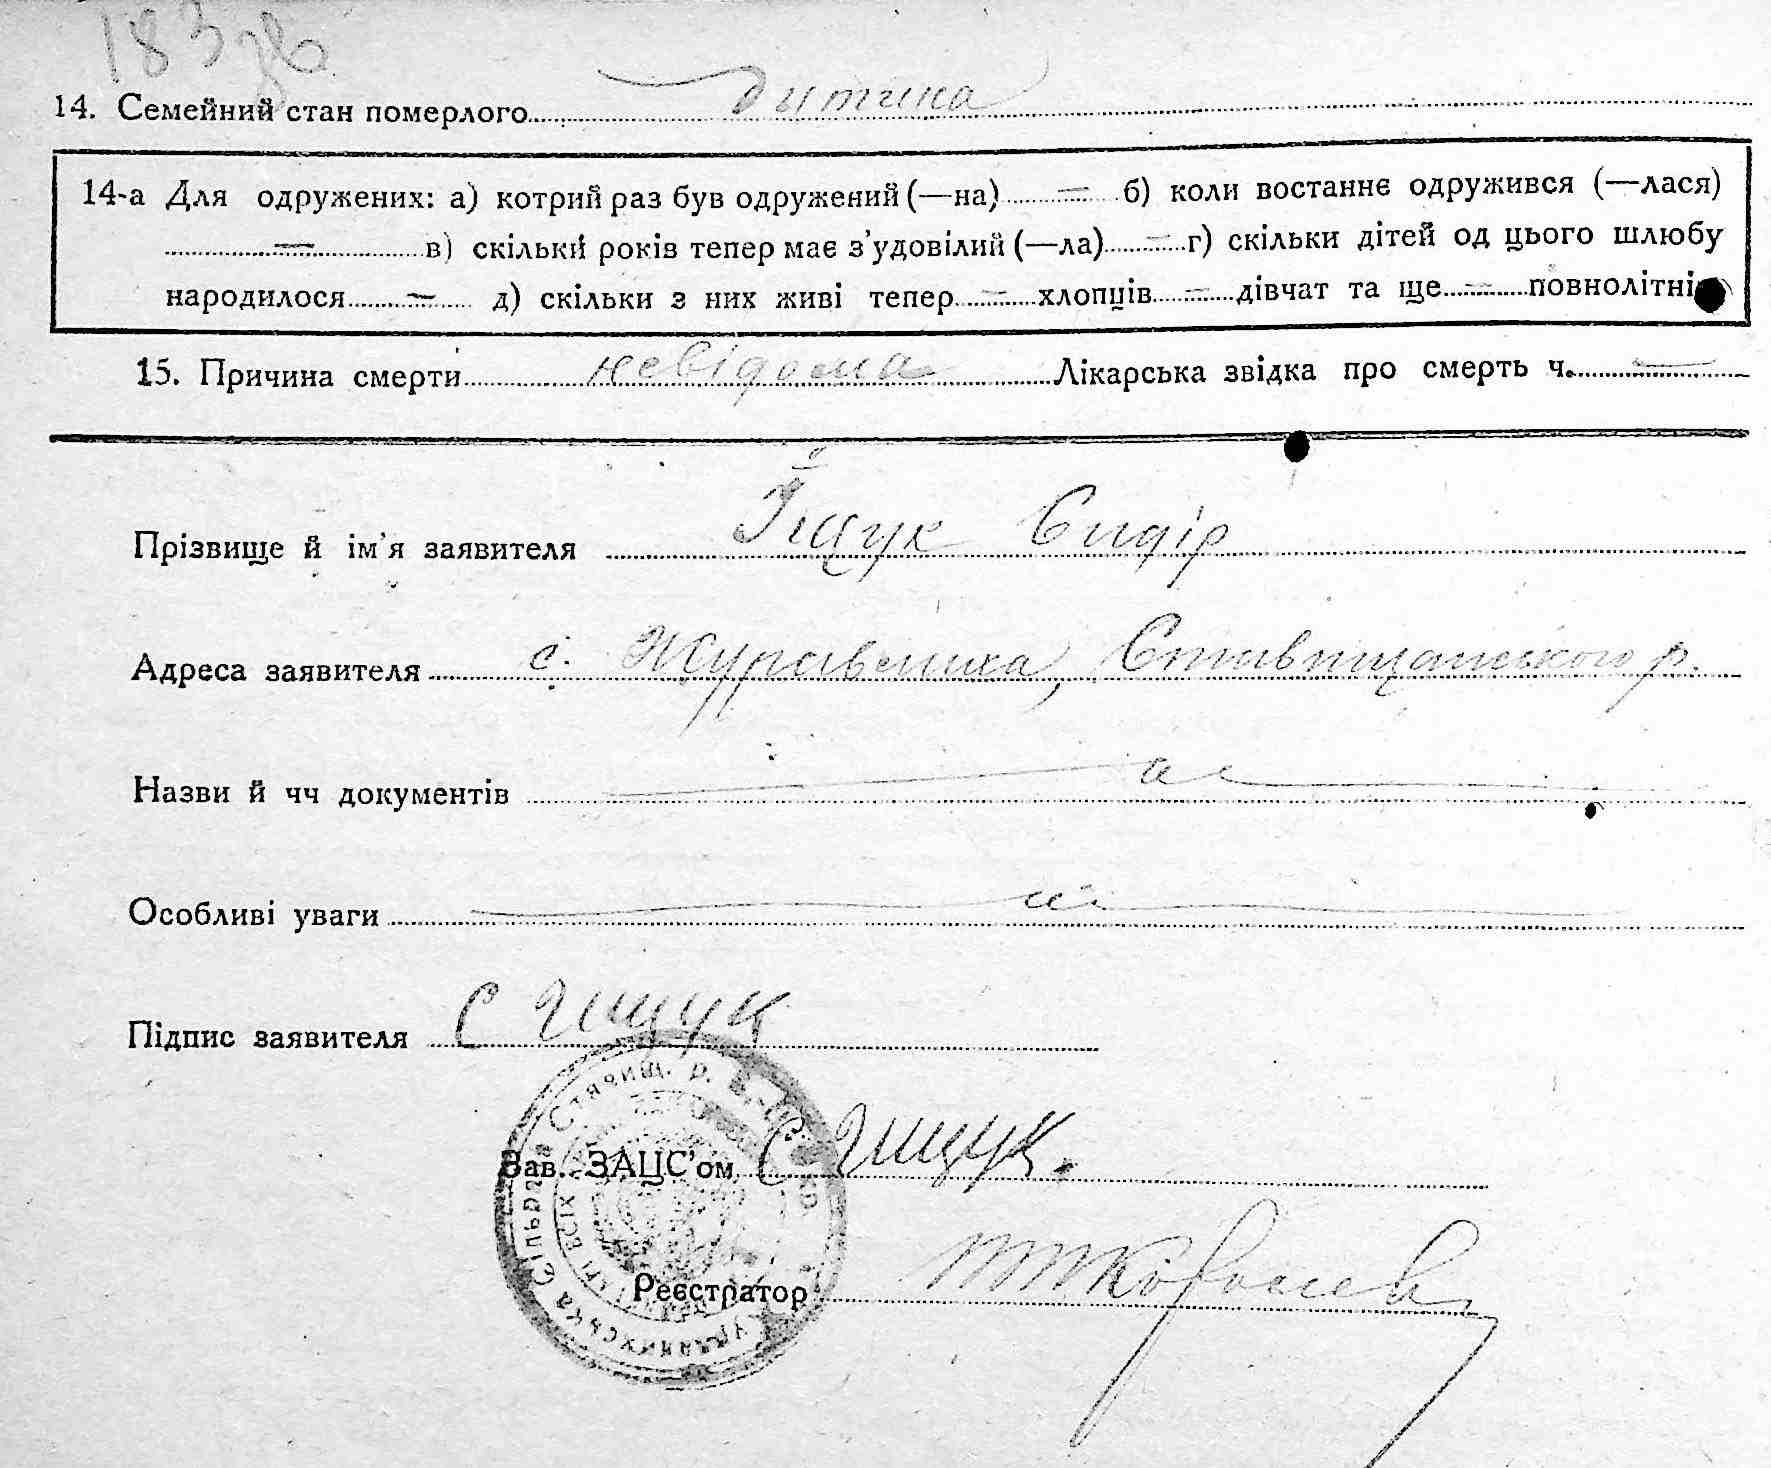 183 зв
14. Семейний стан померлого дитина
14-а Для одружених: а) котрий раз був одружений (—на) = б) коли востаннє одружився (—лася)
= в) скільки років тепер має з’удовілий (—ла) = г) скільки дітей од цього шлюбу
народилося = д) скільки з них живі тепер = хлопців = дівчат та ще = повнолітні
15. Причина смерти невідома Лікарська звідка про смерть ч. —
Прізвище й ім’я заявителя Їщук Сидір
Адреса заявителя с. Журавлиха, Ставищанського р.
Назви й чч документів
Особливі уваги
Підпис заявителя С Їщук
Зав. ЗАЦС’ом С Їщук.
Реєстратор
Сільрада Ставищ. р.